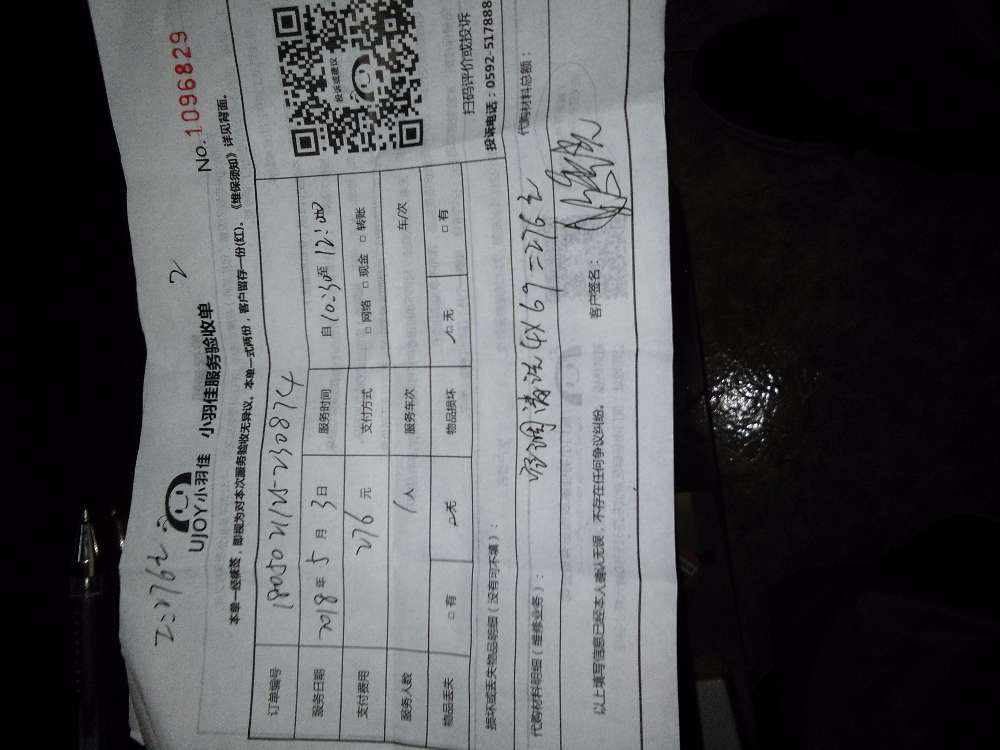 2:276元
2
No.1096829
UJOY小羽佳 小羽佳服务验收单
本单一经填签，即视为对本次服务验收无异议。本单一式两份，客户留存一份(红)。《维保须知》详见背面。
订单编号
服务日期 2018 年 5 月 3 日 服务时间 自 10:30 至 12:00
支付费用 276 元 支付方式 □ 网络 □ 现金 □ 转账
服务人数 1人 服务车次 车/次
物品丢失 □ 有 □ 无 物品损坏 □ 无 □ 有
投诉或建议
扫码评价或投诉
投诉电话：0592-517888
损坏或丢失物品明细（没有可不填）：
代购材料明细（维修业务）： 空调清洗 4X69=276元 代购材料总额：
以上填写信息已经本人确认无误，不存在任何争议纠纷。 客户签名：